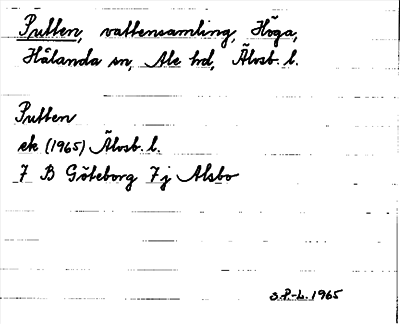 Putten, vattensamling, Höga,
Hålanda sn, Ale hd, Älvsb. l.
Putten
ek (1965) Älvsb. l.
7 B Göteborg 7j Alsbo
S.P-L. 1965